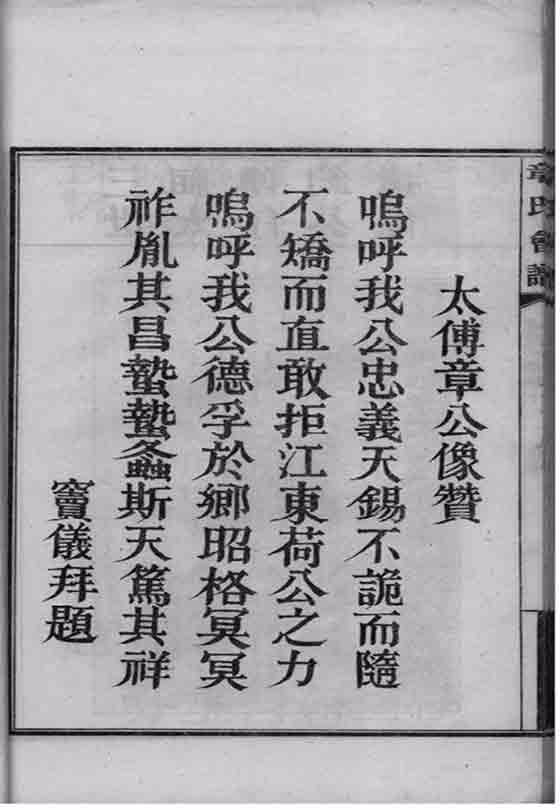 章氏會譜
太傅章公像贊
嗚呼我公忠義天錫不詭而隨
不矯而直敢拒江東荷公之力
嗚呼我公德孚於鄉昭格冥冥
祚胤其昌蟄蟄螽斯天篤其祥
竇儀拜題